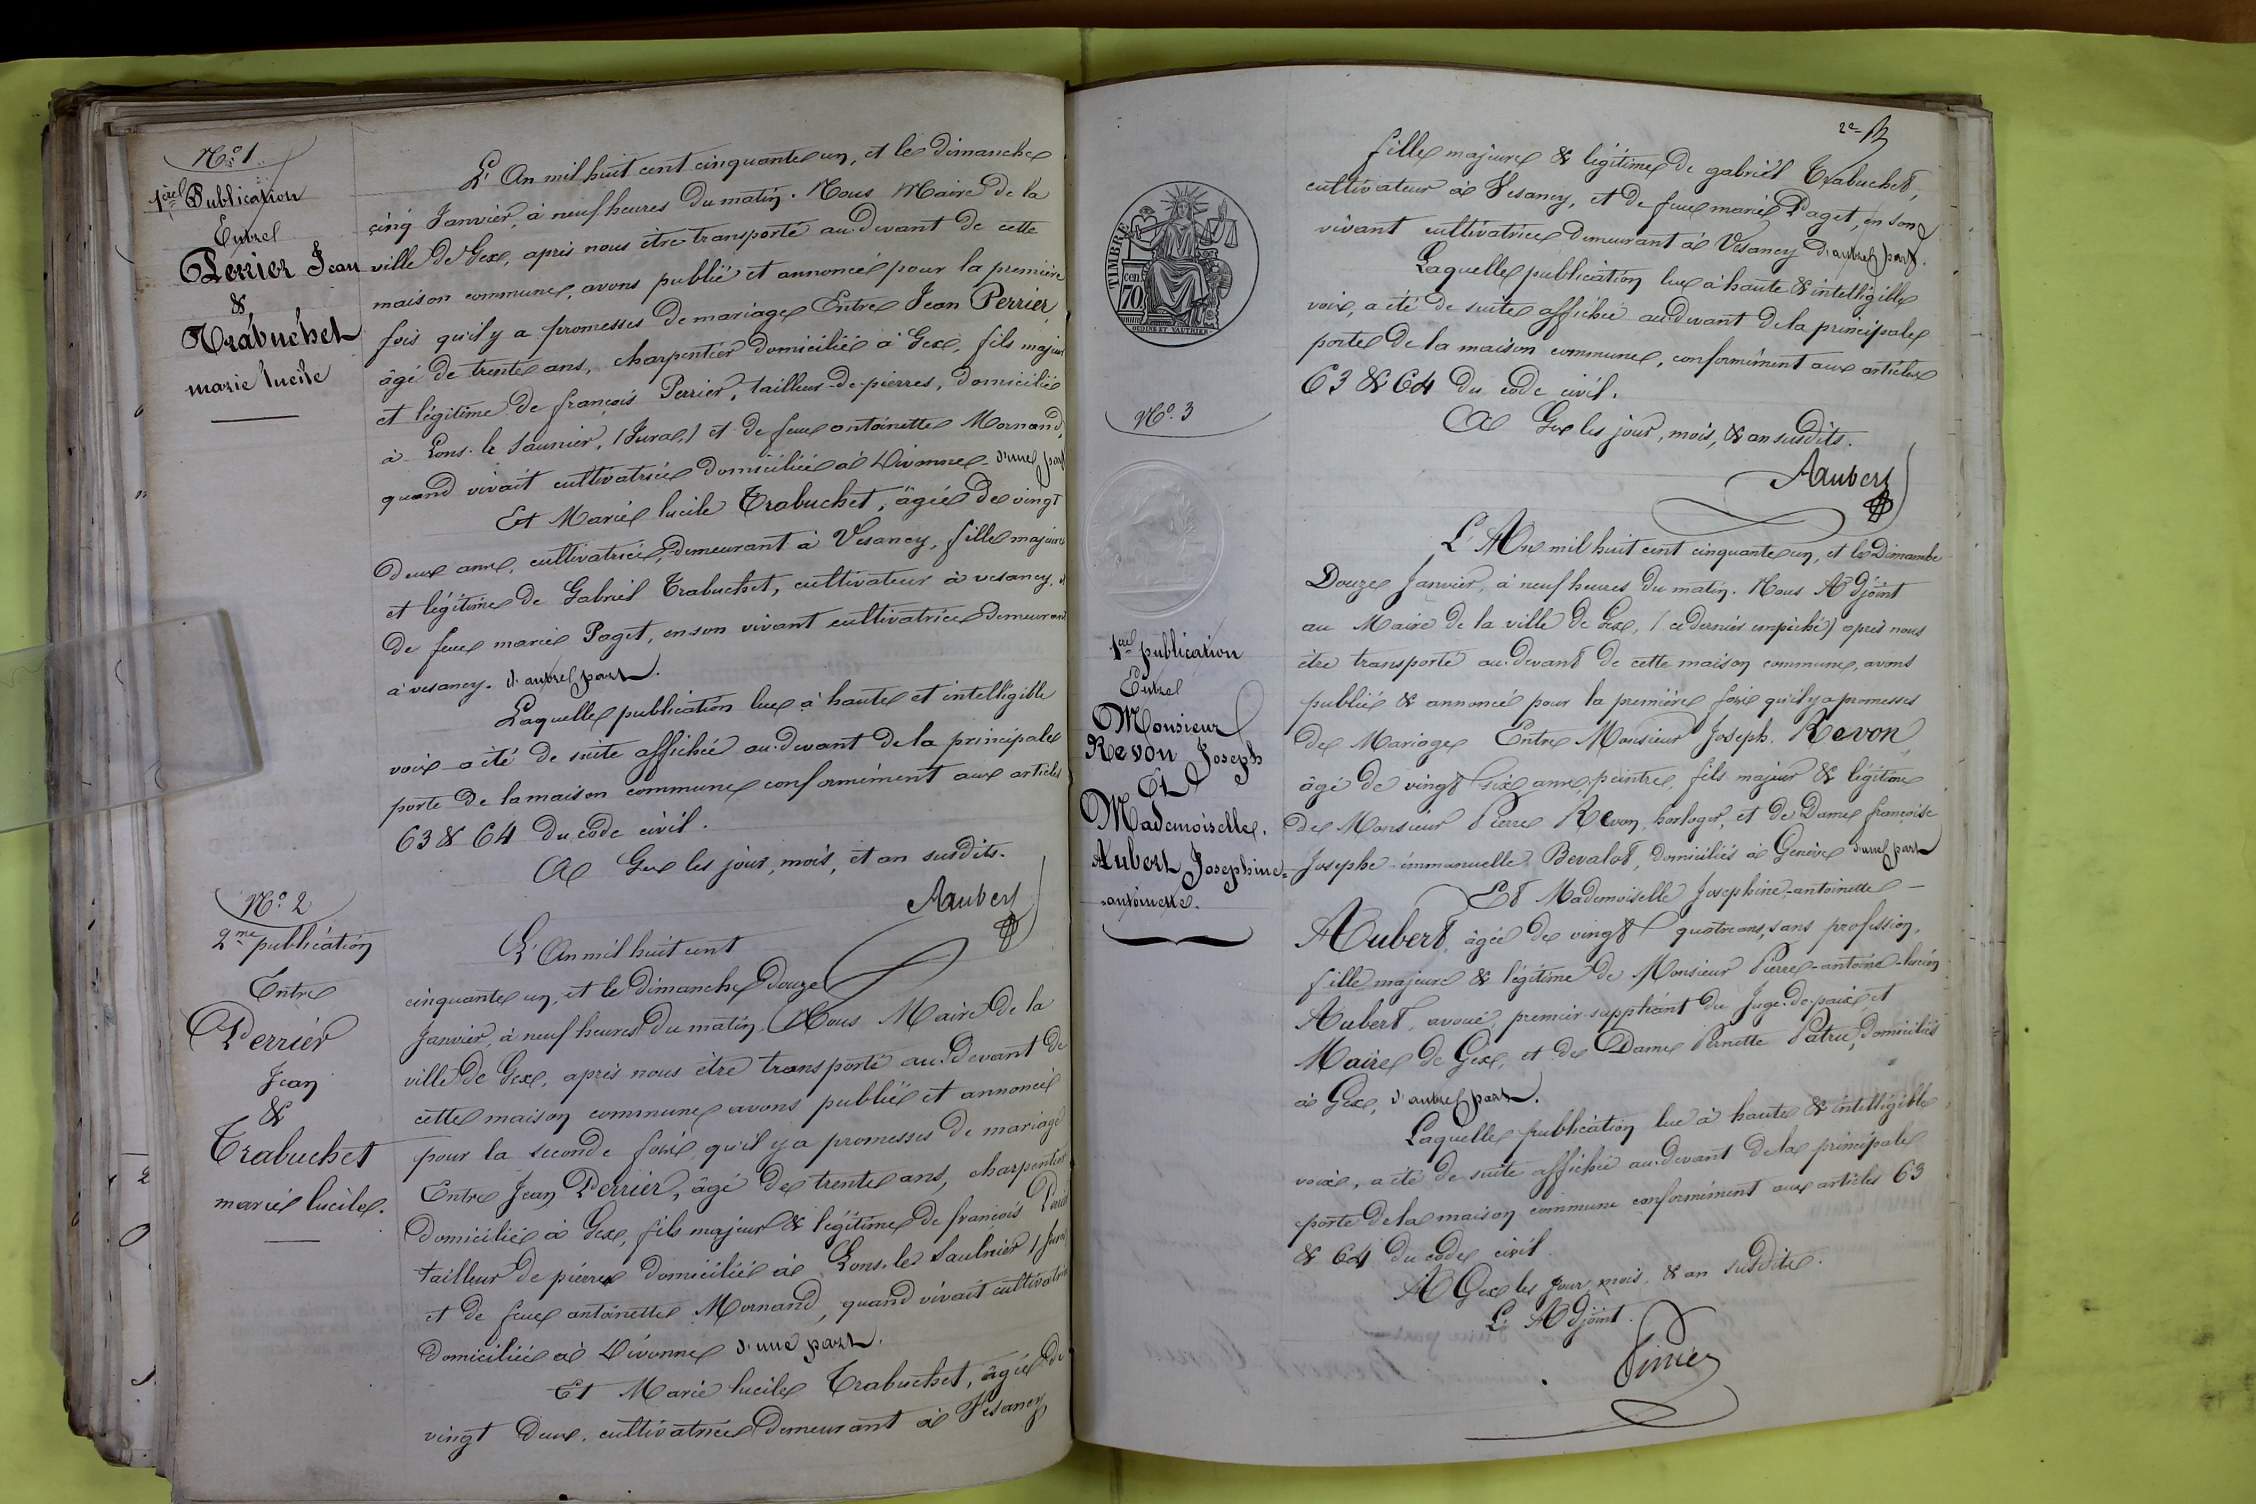 N.° 1
1ère Publication
Entre
Perrier Jean
&
Trabuchet
marie lucile
L'An mil huit cent cinquante un, et le dimanche
cinq Janvier, à neuf heures du matin. Nous Maire de la
ville de Gex, après nous être transporté au-devant de cette
maison commune, avons publié et annoncé pour la première
fois qu'il y a promesses de mariage Entre Jean Perrier,
âgé de trente ans, charpentier domicilié à Gex, fils majeur
et légitime de françois Perrier, tailleur-de-pierres, domicilié
à Lons-le Saunier, (Jura,) et de feue antoinette Mornand,
quand vivait cultivatrice domiciliée à Divonne d'une part
Et Marie lucile Trabuchet, âgée de vingt
deux ans, cultivatrice, demeurant à Vesancy, fille majeure
et légitime de Gabriel Trabuchet, cultivateur à vesancy, et
de feue marie Paget, en son vivant cultivatrice demeurant
à vesancy. d'autre part.
Laquelle publication lue à haute et intelligible
voix a été de suite affichée au-devant de la principale
porte de la maison commune conformément aux articles
63 & 64 du code civil.
A Gex les jour, mois, et an susdits.
Aubert
N.° 2
2me publication
Entre
Perrier
Jean
&
Trabuchet
marie lucile.
L'An mil huit cent
cinquante un, et le dimanche douze
Janvier, à neuf heures du matin. Nous Maire de la
ville de Gex, après nous être transporté au-devant de
cette maison commune avons publié et annoncé
pour la seconde fois, qu'il y a promesses de mariage
Entre Jean Perrier, âgé de trente ans, charpentier
domicilié à Gex, fils majeur & légitime de francois
tailleur de pierres domicilié à Lons-le Saulnier (Jura
et de feue antoinette Mornand, quand vivait cultivatrice
domiciliée à Divonne d'une part.
Et Marie lucile Trabuchet, âgée de
vingt deux, cultivatrice demeurant à Vesancy,
2e
fille majeure & légitime de gabriel Trabuchet,
cultivateur à Vesancy, et de feue marie Paget, en son
vivant cultivatrice demeurant à Vesancy d'autre part.
Laquelle publication lue à haute & intelligible
voix, a été de suite affichée au-devant de la principale
porte de la maison commune, conformément aux articles
63 & 64 du code civil.
A Gex les jour, mois, & an susdits.
Aubert
TIMBRE
cen
70
N.° 3
1ère publication
Entre
Monsieur
Revon Joseph
Et
Mademoiselle.
Aubert Josephine-
-antoinette.
L'An mil huit cent cinquante un, et le Dimanche
Douze Janvier, à neuf heures du matin. Nous Adjoint
au Maire de la ville de Gex, (ce dernier empêché) après nous
être transporté au-devant de cette maison commune, avons
publié & annoncé pour la première fois qu'il y a promesses
de Mariage Entre Monsieur Joseph. Revon,
âgé de vingt six ans, peintre, fils majeur & légitime
de Monsieur Pierre Revon, horloger, et de Dame françoise
Josephe-émmanuelle Bevalot, domiciliés à Genève d'une part
Et Mademoiselle Josephine-antoinette
Aubert, âgée de vingt quatre ans, sans profession,
fille majeure & légitime de Monsieur Pierre-antoine-lucien
Aubert, avoué, premier suppléant du Juge-de-paix et
Maire de Gex, et de Dame Pernette Patru, domiciliés
à Gex, d'autre part.
Laquelle publication lue à haute & intelligible
voix, a été de suite affichée au-devant de la principale
porte de la maison commune conformément aux articles 63
& 64 du code civil
A Gex les jour mois, & an susdits.
L'Adjoint.